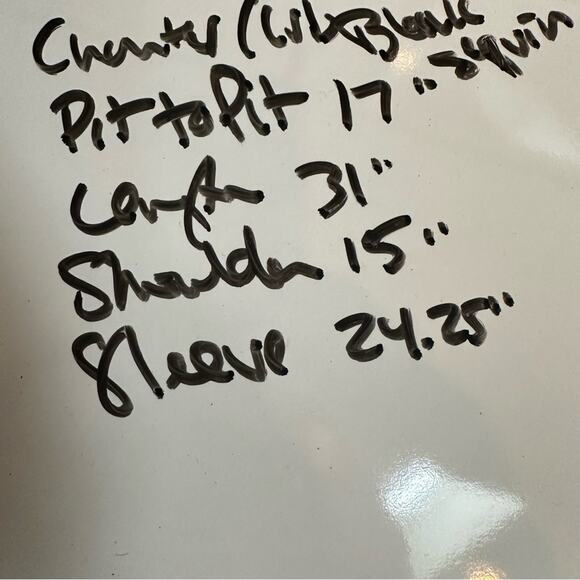 Black sequin
Pit to Pit 17"
Length 31"
Shoulder 15"
Sleeve 24.25"